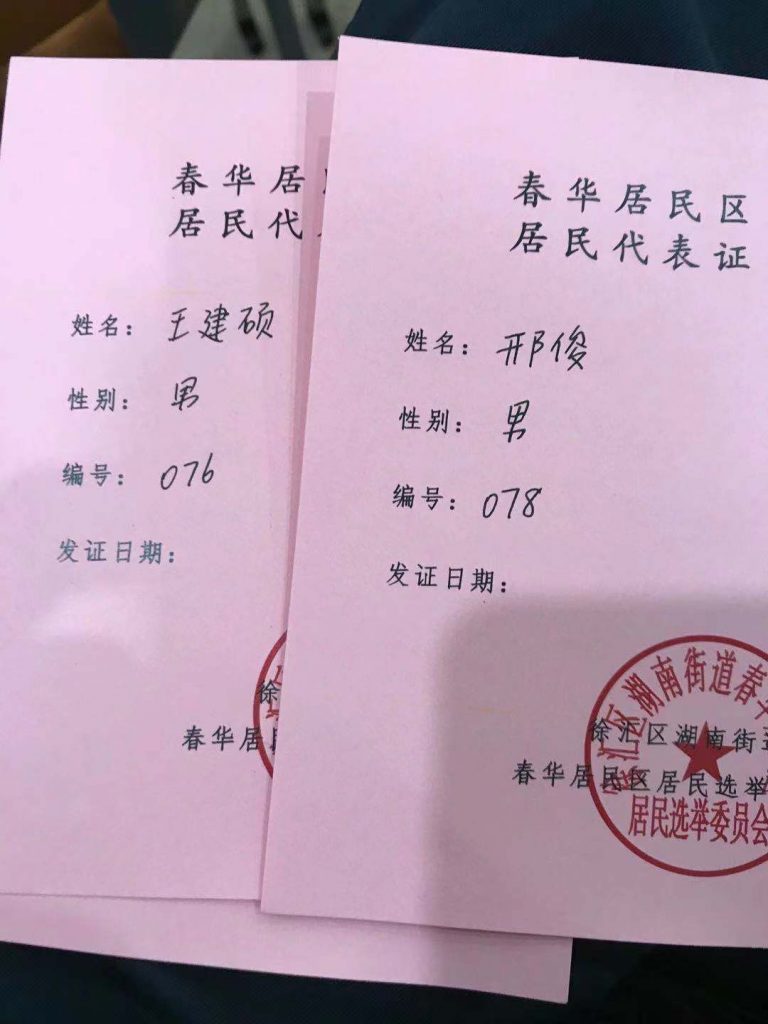 春华居
居民代
姓名：王建硕
性别：男
编号：076
发证日期：
徐
春华居
春华居民区
居民代表证
姓名：邢俊
性别：男
编号：078
发证日期：
徐汇区湖南街道
春华居民区居民选举
徐汇区湖南街道春华
居民选举委员会